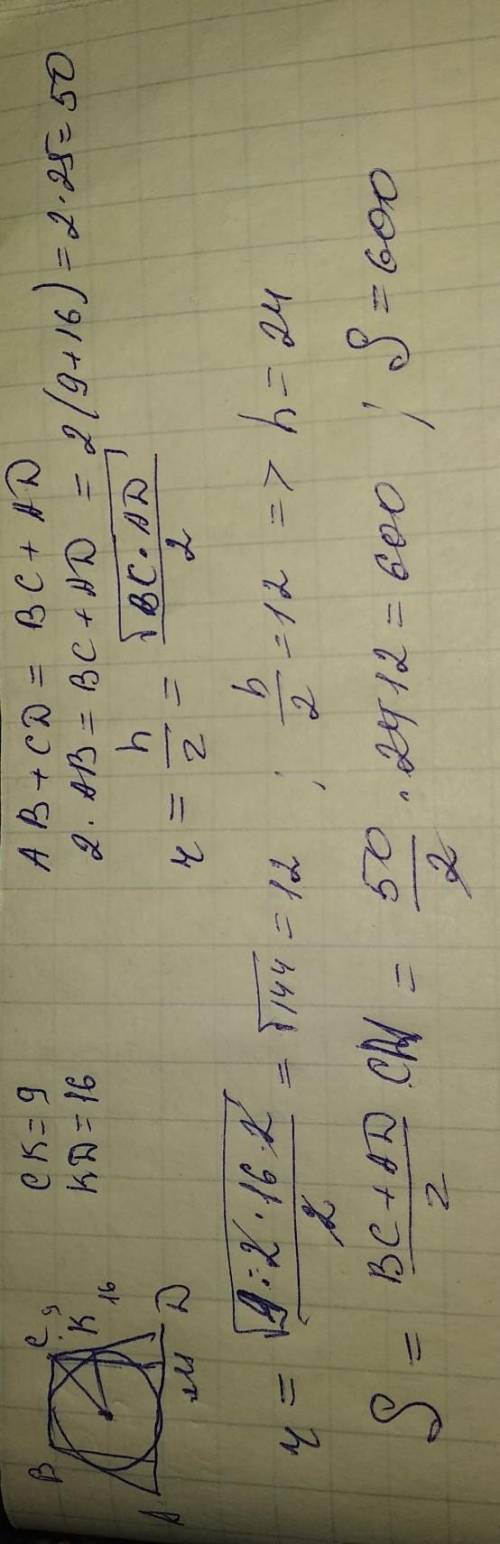 B C 9 K 16 A M D
CK = 9
KD = 16
AB + CD = BC + AD
2 · AB = BC + AD = 2 (9 + 16) = 2 · 25 = 50
r = h/2 = √(BC · AD)/2
r = √(9 · 2 · 16 · 2)/2 = √144 = 12 ; h/2 = 12 => h = 24
S = (BC + AD)/2 · CM = 50/2 · 24 12 = 600 ; S = 600